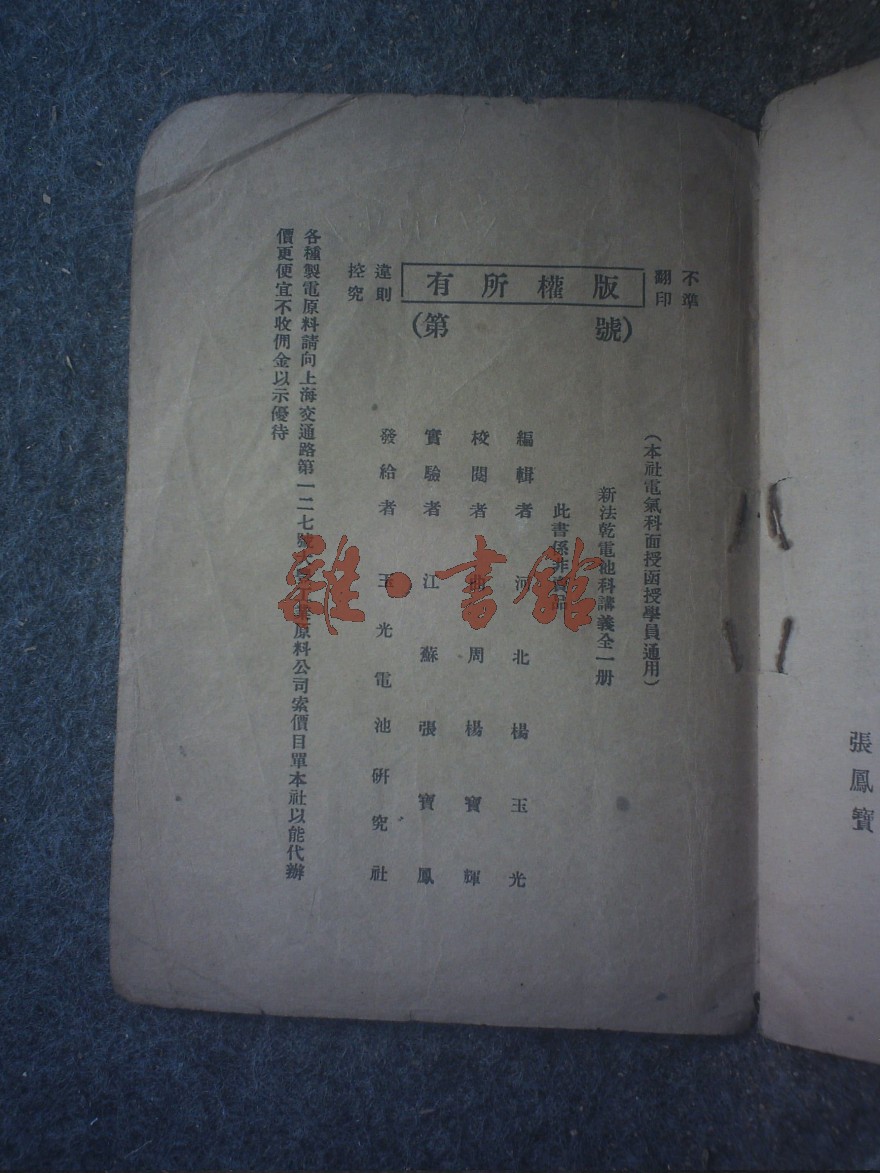 張鳳寶
不準
翻印
版權所有
（第　號）
違則
控究
（本社電氣科面授函授學員通用）
新法乾電池科講義全一册
此書係非賣品
編輯者 河北楊玉光
校閱者 周楊寶輝
實驗者 江蘇張寶鳳
發給者 玉光電池研究社
各種製電原料請向上海交通路第一二七號原料公司索價目單本社以能代辦
價更便宜不收佣金以示優待
雜·書館